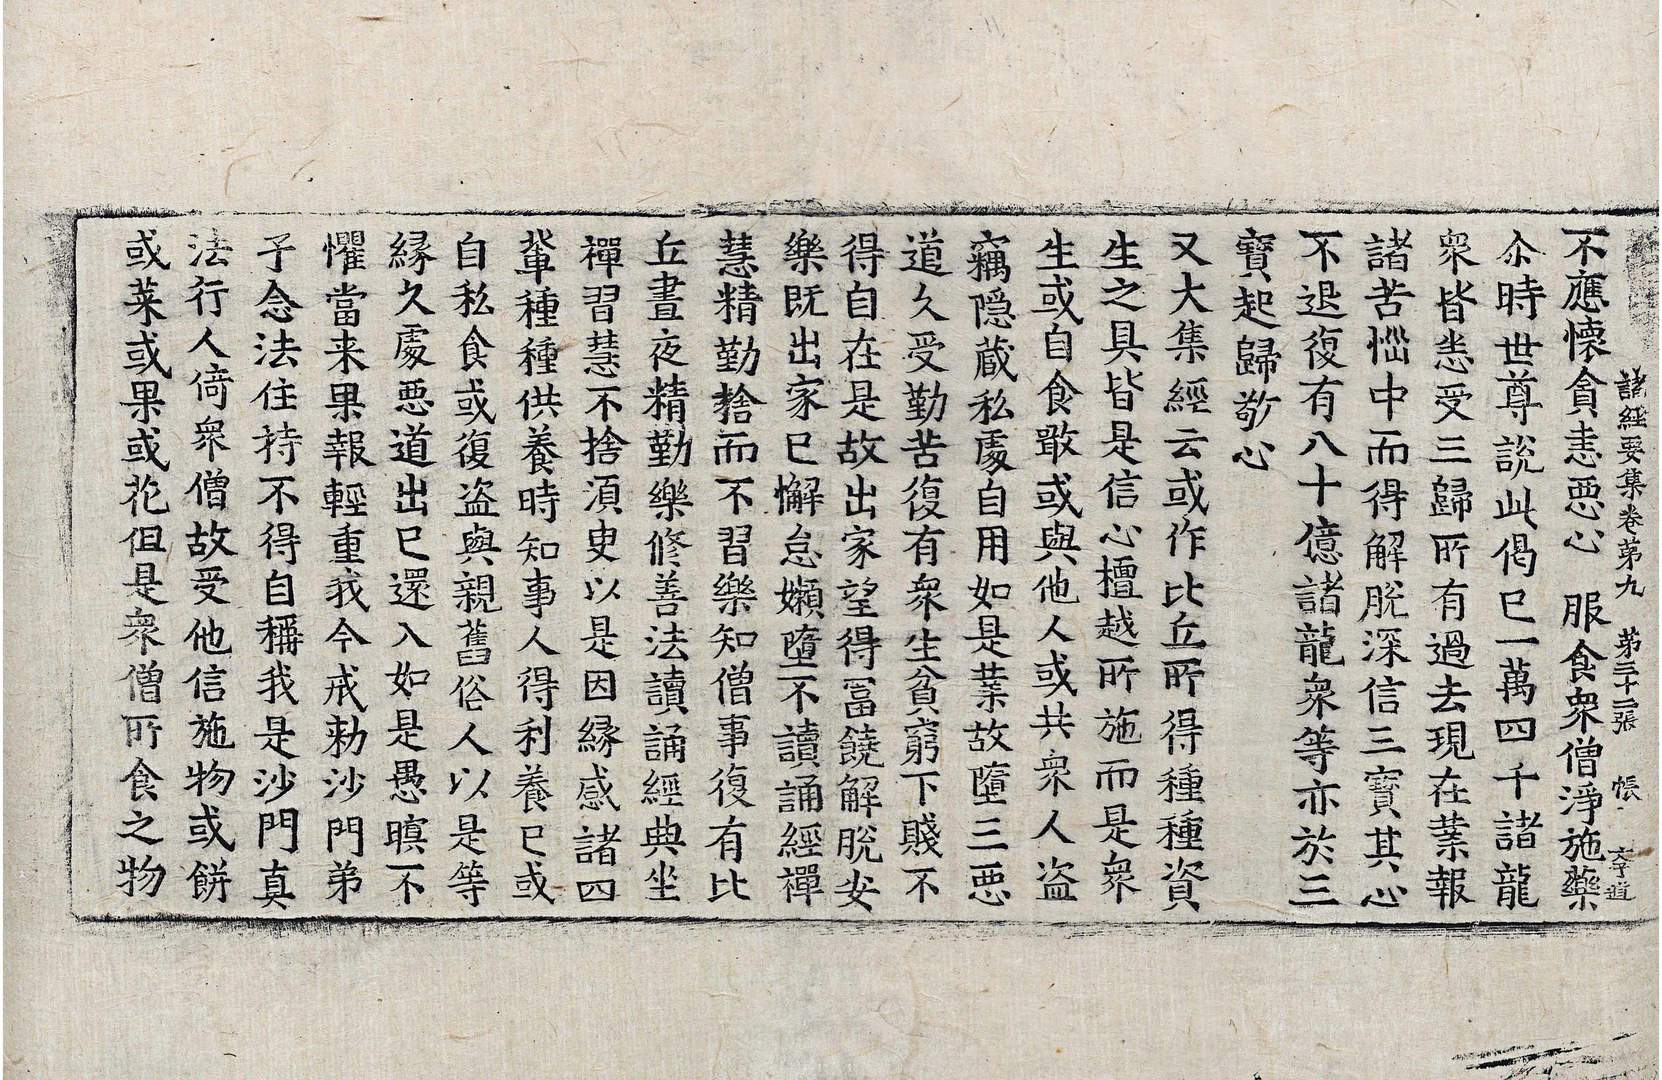 諸經要集卷第九 第三十二張 帙
不應懷貪恚惡心 服食衆僧淨施藥
尒時世尊說此偈已一萬四千諸龍
衆皆悉受三歸所有過去現在業報
諸苦惱中而得解脫深信三寶其心
不退復有八十億諸龍衆等亦於三
寶起歸敬心
又大集經云或作比丘所得種種資
生之具皆是信心檀越所施而是衆
生或自食噉或與他人或共衆人盜
竊隱藏私處自用如是業故墮三惡
道久受勤苦復有衆生貧窮下賤不
得自在是故出家望得冨饒解脫安
樂既出家已懈怠嬾墮不讀誦經禪
慧精勤捨而不習樂知僧事復有比
丘晝夜精勤樂修善法讀誦經典坐
禪習慧不捨湏臾以是因緣感諸四
輩種種供養時知事人得利養已或
自私食或復盜與親舊俗人以是等
緣久處惡道出已還入如是愚瞑不
懼當来果報輕重我今戒勅沙門弟
子念法住持不得自稱我是沙門真
法行人倚衆僧故受他信施物或餅
或菜或果或花但是衆僧所食之物